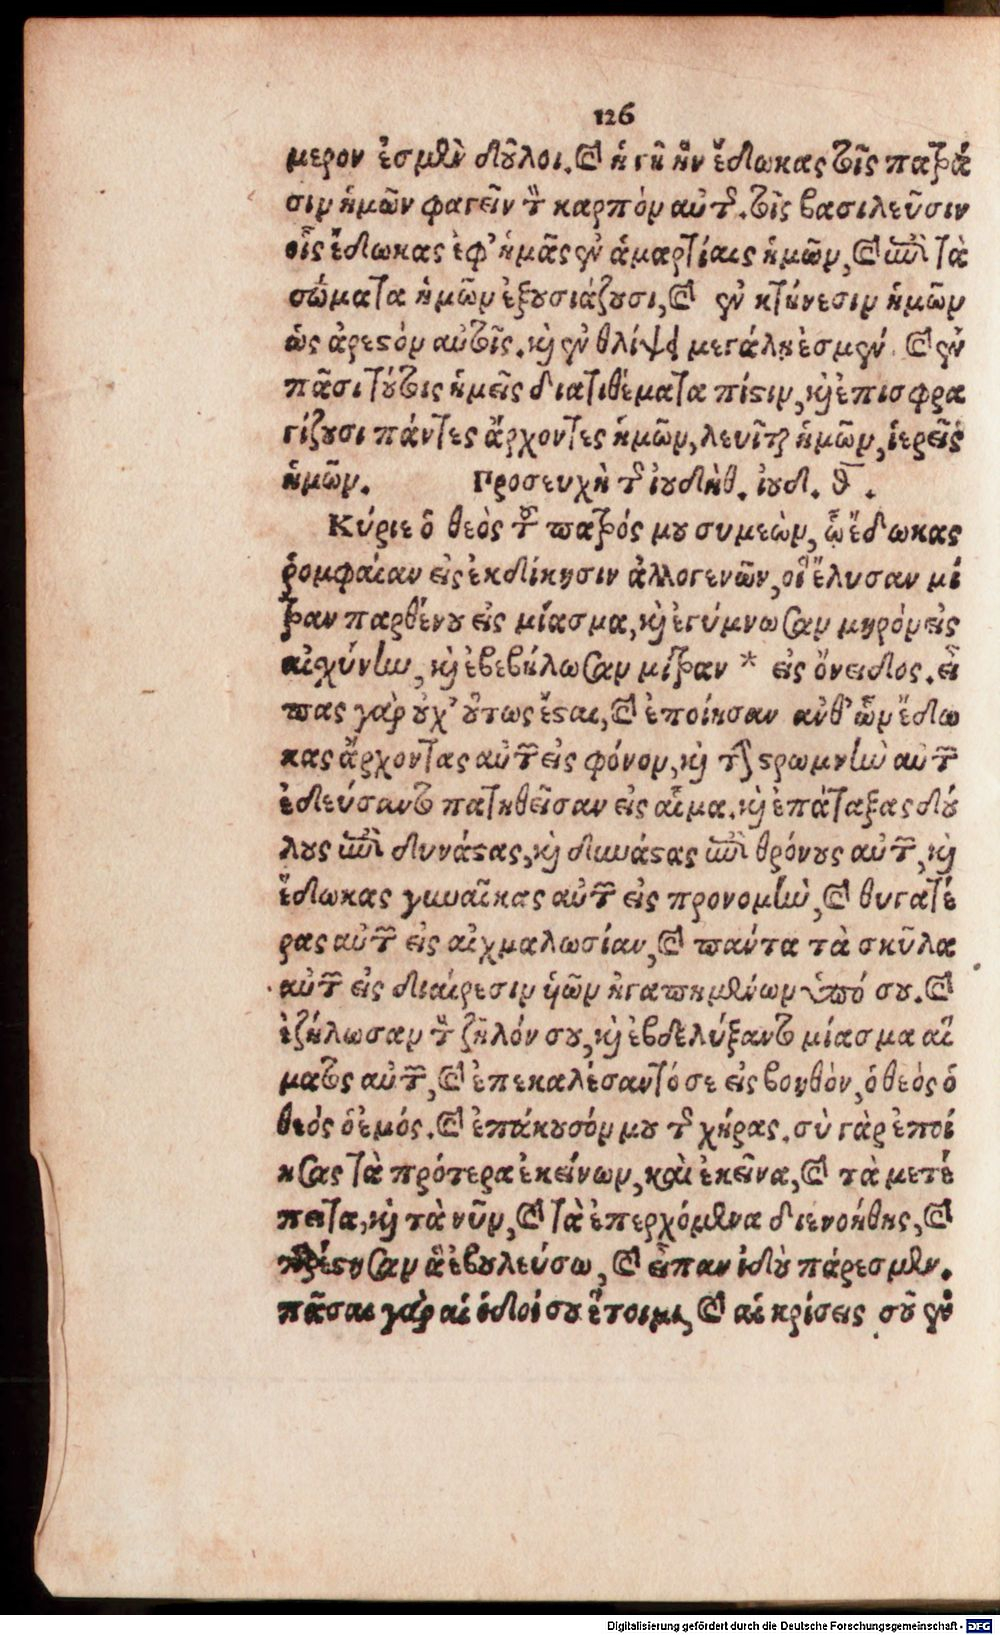 126
μερον ἐσμὲν δοῦλοι. καὶ ἡ γῆ ἣν ἔδωκας τοῖς πατρά
σιν ἡμῶν φαγεῖν τὸν καρπὸν αὐτοῦ. τοῖς βασιλεῦσιν
οἷς ἔδωκας ἐφ’ ἡμᾶς ἐν ἁμαρτίαις ἡμῶν, καὶ ἐπὶ τὰ
σώματα ἡμῶν ἐξουσιάζουσι, καὶ ἐν κτήνεσιν ἡμῶν
ὡς ἀρεστὸν αὐτοῖς. καὶ ἐν θλίψει μεγάλη ἐσμέν. καὶ ἐν
πᾶσι τούτοις ἡμεῖς διατιθέματα πίστιν, καὶ ἐπισφρα
γίζουσι πάντες ἄρχοντες ἡμῶν, λευῖται ἡμῶν, ἱερεῖς
ἡμῶν. Προσευχὴ τοῦ ἰουδὴθ. ἰουδ. θ.
Κύριε ὁ θεὸς τοῦ πατρός μου συμεὼν, ᾧ ἔδωκας
ῥομφαίαν εἰς ἐκδίκησιν ἀλλογενῶν, οἳ ἔλυσαν μί
τραν παρθένου εἰς μίασμα, καὶ ἐγύμνωσαν μηρὸν εἰς
αἰσχύνην, καὶ ἐβεβήλωσαν μίτραν * εἰς ὄνειδος. εἶ
πας γὰρ οὐχ’ οὕτως ἔσται, καὶ ἐποίησαν ἀνθ’ ὧν ἔδω
κας ἄρχοντας αὐτῶν εἰς φόνον, καὶ τὴν στρωμνὴν αὐτῶν
ἐδεύσαντο πατηθεῖσαν εἰς αἷμα. καὶ ἐπάταξας δού
λους ἐπὶ δυνάστας, καὶ δυνάστας ἐπὶ θρόνους αὐτῶν, καὶ
ἔδωκας γυναῖκας αὐτῶν εἰς προνομὴν, καὶ θυγατέ
ρας αὐτῶν εἰς αἰχμαλωσίαν, καὶ πάντα τὰ σκῦλα
αὐτῶν εἰς διαίρεσιν ἡῶν ἠγαπημένων ὑπό σου. καὶ
ἐζήλωσαν τὸν ζῆλόν σου, καὶ ἐβδελύξαντο μίασμα αἵ
ματος αὐτῶν, καὶ ἐπεκαλέσαντό σε εἰς βοηθὸν, ὁ θεὸς ὁ
θεὸς ὁ ἐμός. καὶ ἐπάκουσόν μου τοῦ χήρας. σὺ γὰρ ἐποί
ησας τὰ πρότερα ἐκείνων, καὶ ἐκεῖνα, καὶ τὰ μετέ
πειτα, καὶ τὰ νῦν, καὶ τὰ ἐπερχόμενα διενοήθης, καὶ
παρέστησαν ἃ ἐβουλεύσω, καὶ εἶπαν ἰδοὺ πάρεσμεν.
πᾶσαι γὰρ αἱ ὁδοί σου ἕτοιμοι, καὶ αἱ κρίσεις σοῦ ἐν
Digitalisierung gefördert durch die Deutsche Forschungsgemeinschaft - DFG